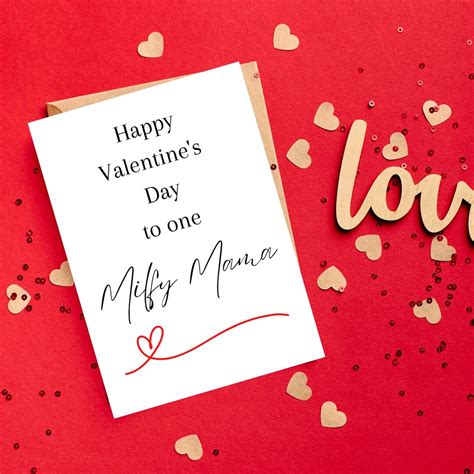 Happy
Valentine's
Day
to one
Milfy Mama
lov